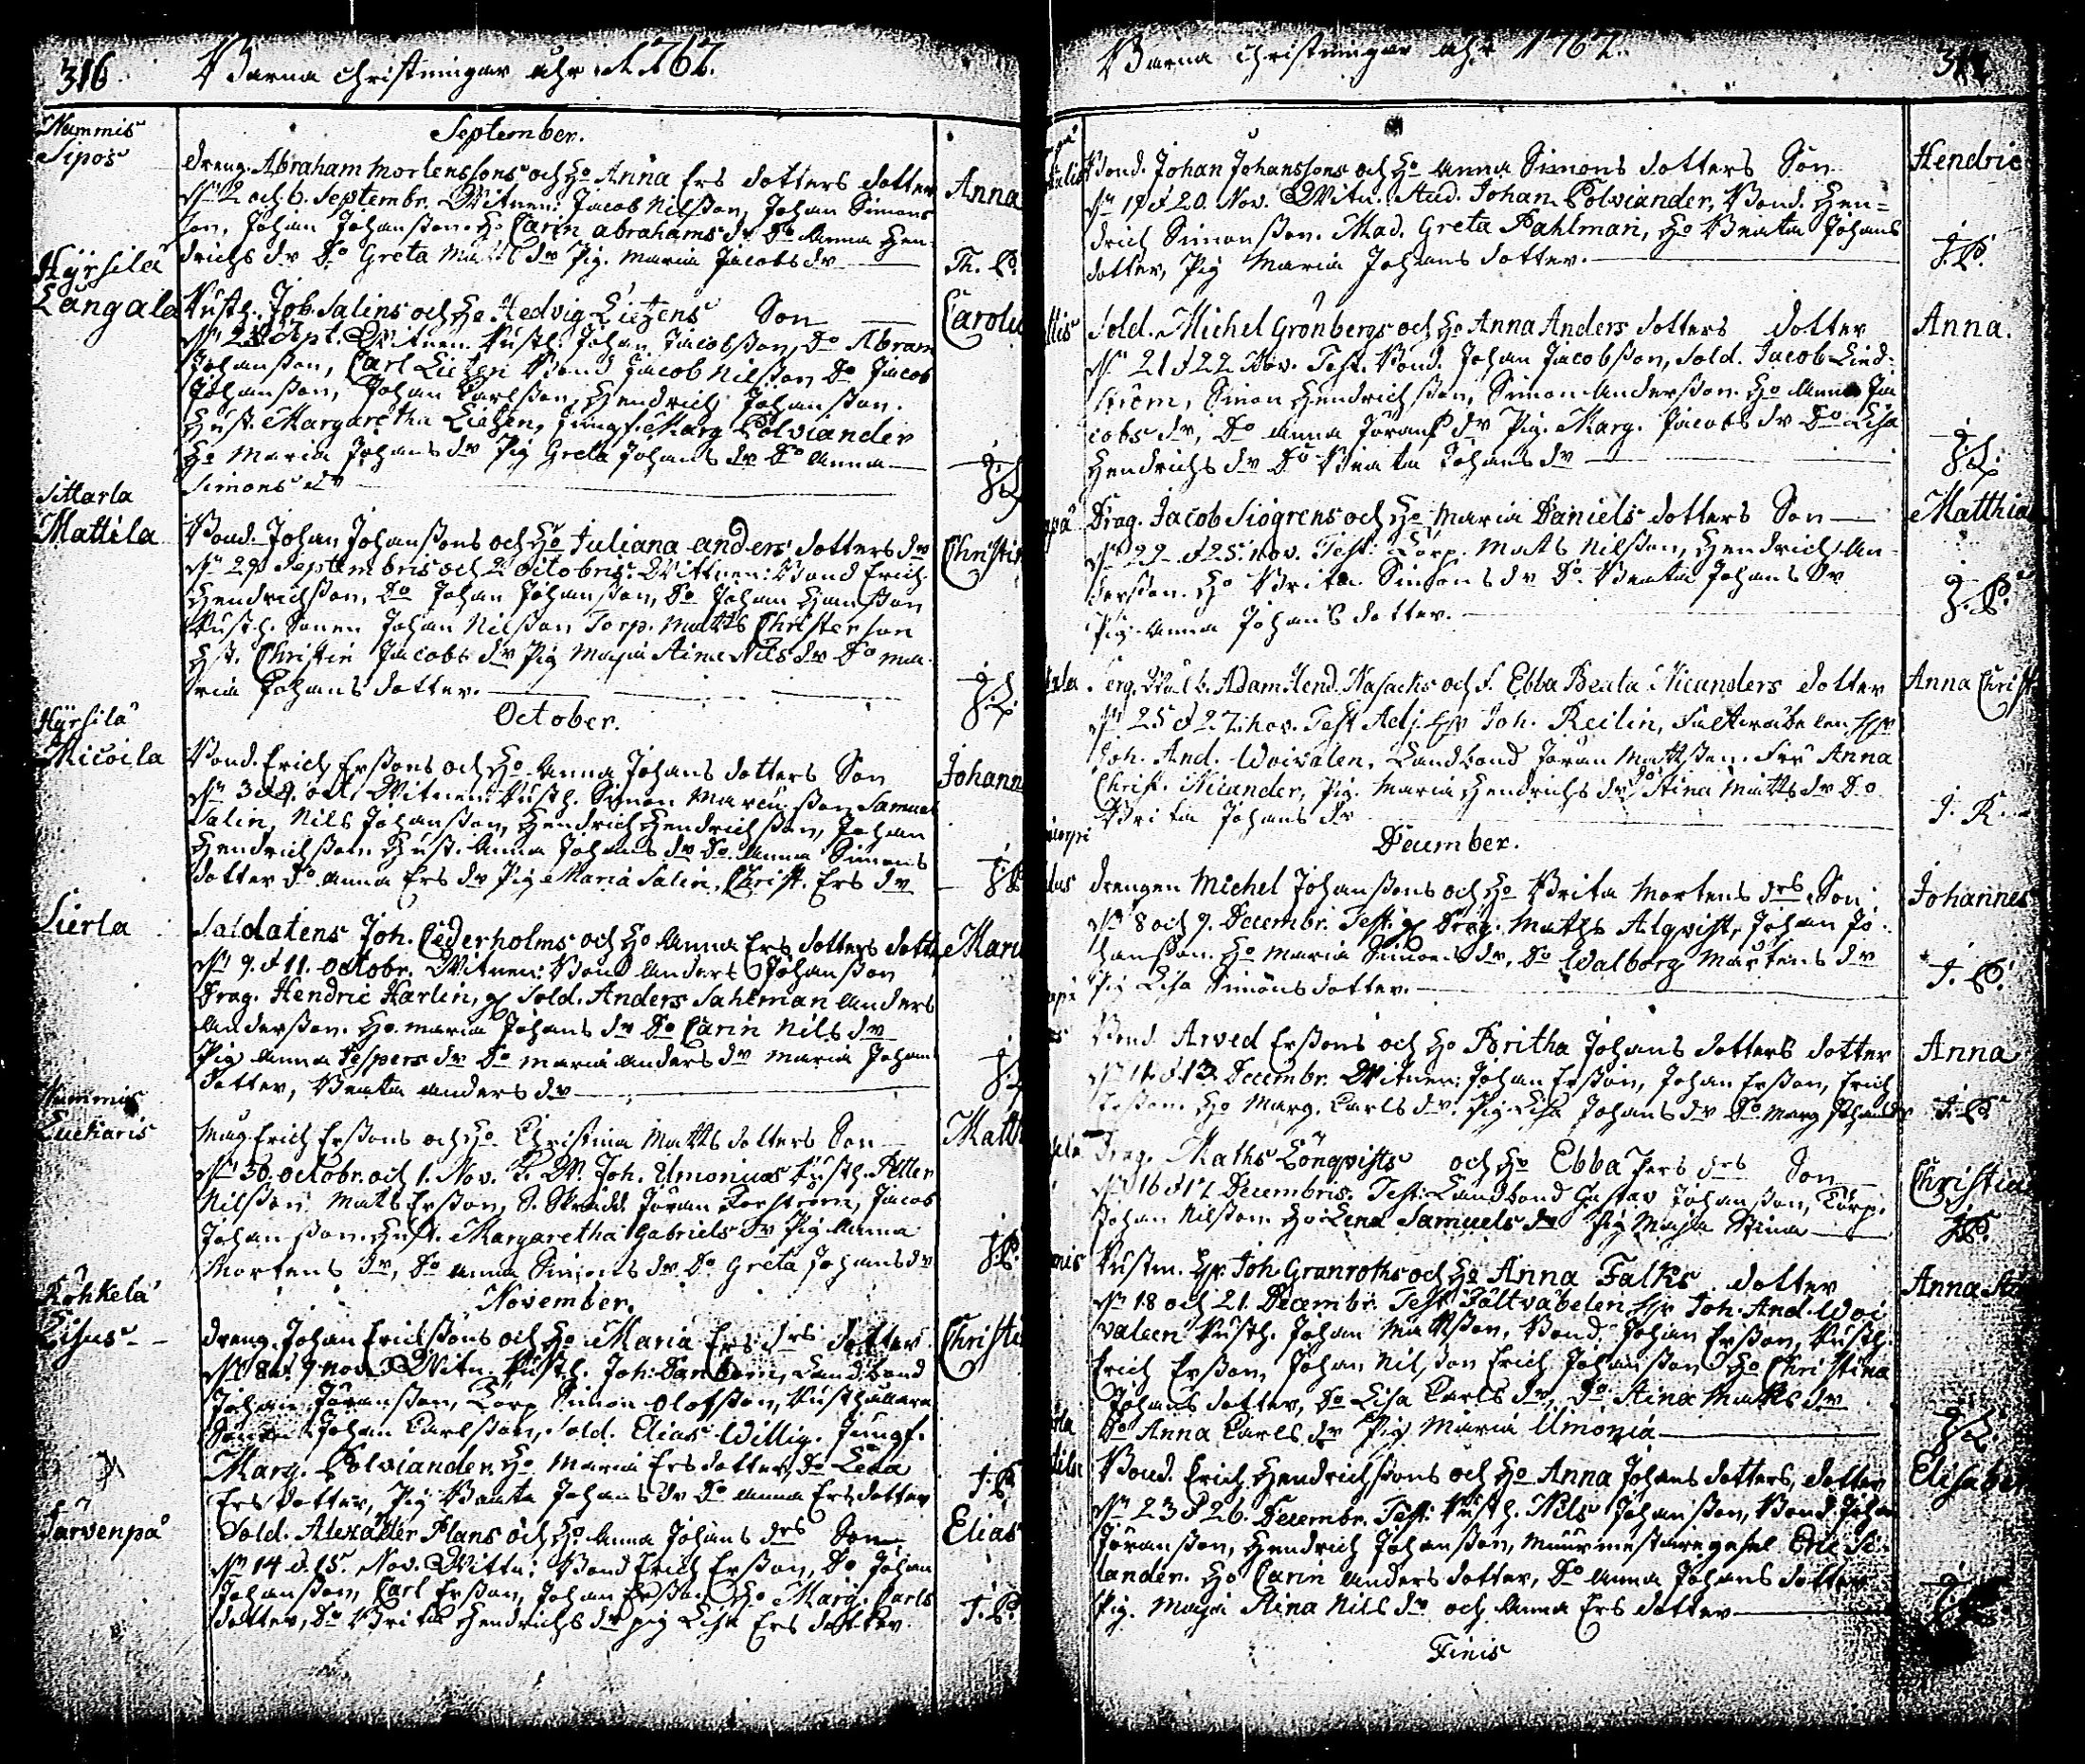 316. Barna Christningar ahr 1767.
September.
Nummis
Sipos
dreng. Abraham Mortenssons och H° Anna Ers dotters dotter Anna
N. 2 och 6. Septembr. Witnen: Jacob Nilsson, Johan Simons
son, Johan Johansson. H° Carin abrahams dr D° Anna Hen-
drichs dr D° Greta Matts dr Pig. Maria Jacobs dr Th. P.
Hyrsilä
Långala
Rusth. Joh. Salins och H° Hedvig Lietzens Son Carolu
N. Sept. Witnen Rusth. Johan Jacobsson, D° Abram
Johansson, Carl Lietzen Bond Jacob Nilsson D° Jacob
Johansson, Johan Carlsson, Hendrich Johansson.
Hust. Margaretha Lietzen, Jungf. Marg Polviander
H° Maria Johans dr Pig Greta Johans dr D° Anna
Simons dr
Sittarla
Mattila
Bond. Johan Johanssons och H° Juliana anders dotters dr Christin
N. 29 Septembris och 2 Octobris. Wittnen: Bond Erich
Hendrichsson, D° Johan Johansson, D° Johan Hansson
Rusth. Sonen Johan Nilsson Torp. Matts Christerson
Hst. Christin Jacobs dr Pig Maja Stina Nils dr D° Ma-
ria Johans dotter.
October.
Hyrsilä
Micoila
Bond. Erich Erssons och H° Anna Johans dotters Son Johann
N. 3 d. oct. Witnen: Rusth. Simon Marcusson Samuel
Salin, Nils Johansson, Hendrich Hendrichsson, Johan
Hendrichsson Hust. Anna Johans dr D° Anna Simons
dotter D° Anna Ers dr Pig Maria Salin, Christ. Ers dr
Sierla
Saldatens Joh. Cederholms och H° Anna Ers dotters dotte Mari
N. 9. d 11. octobr. Witnen: Bond Anders Johansson
Drag. Hendric Harlin, Sold. Anders Sahlman Anders
Andersson. H° Maria Johans dr D° Carin Nils dr
Pig Anna Jespers dr D° Maria Anders dr Maria Johans
dotter, Beata Anders dr
Nummis
Luckaris
Erich Erssons och H° Christina Matts dotters Son Matt
N. 30. octobr. och 1. Nov. Joh. Umonius Rusth. Petter
Nilsson Mats Ersson, S. Skrädd. Jöran Forström, Jacob
Johansson. Hust. Margaretha Gabriels dr Pig Anna
Mortens dr, D° Anna Simons dr D° Greta Johans dr
November.
Röhkelä
Lisus
dreng. Johan Erichssons och H° Maria Ers drs dotter Christi
N. 8 d. 9 Nov. Witn. Rusth. Joh: Danbom, Landbond
Johan Jöransson, Torp Simon Olofsson, Rusthållare
Sonen Johan Carlsson, Sold. Elias Willig. Jungf.
Marg. Polviander, H° Maria Ers dotter, D° Lena
Ers dotter, Pig Beata Johans dr D° Anna Ers dotter J. P.
Jarvenpä
Sold. Alexander Plans och H° Anna Johans drs Son Elias
N. 14 d. 15. Nov. Wittn: Bond Erich Ersson, D° Johan
Johansson, Carl Ersson, Johan Ersson H° Marg. Carls
dotter, D° Brita Hendrichs dr pig Lisa Ers dotter J. P.
Barna Christningar ahr 1767.
Bond. Johan Johanssons och H° Anna Simons dotters Son Hendric
N. 19 d 20. Nov. Witn. Stud. Johan Polviander, Bond. Hen-
drich Simonsson. Mad. Greta Pahlman, H° Beata Johans
dotter, Pig Maria Johans dotter. J. P.
Sold. Michel Grönbergs och H° Anna Anders dotters dotter Anna.
N. 21 d 22 Nov. Test. Bond. Johan Jacobsson, Sold. Jacob Lind-
ström, Simon Hendrichsson, Simon Andersson. H° Anna Ja
cobs dr, D° Anna Jörans dr Pig. Marg. Jacobs dr D° Lisa
Hendrichs dr D° Beata Johans dr
Drag. Jacob Siögrens och H° Maria Daniels dotters Son Matthia
N. 22 d 25. nov. Test: Torp. Mats Nilsson, Hendrich An-
dersson. H° Brita Simons dr D° Beata Johans dr
Pig Anna Johans dotter.
Serg. Adam Hend. Nasackis och F. Ebba Beata Nicanders dotter Anna Christ
N. 25 d 27. nov. Test Adj. Hr Joh. Reilin, Faltwäbelen Hr
Joh. And. Woivalen, Landbond Jöran Mattsson. Fru Anna
Christ. Nicander, Pig. Maria Hendrichs dr D° Stina Matts dr D°
Brita Johans dr J. R.
December.
drengen Michel Johanssons och H° Brita Mortens drs Son Johannes
N. 8 och 9. Decembr. Test. Drag. Maths Alqvist, Johan Jo-
hansson. H° Maria Simons dr, D° Walborg Martens dr
Pig Lisa Simons dotter. J. P.
Bond Arved Erssons och H° Britha Johans dotters dotter Anna
N. 11. d 13. Decembr. Witnen: Johan Ersson, Johan Ersson, Erich
Ersson. H° Marg. Carls dr. Pig Lisa Johans dr D° Marg Johans dr J. P.
Drag. Maths Lönqvists och H° Ebba Pers drs Son Christia
N. 16 d 17 Decembris. Test: Landbond Gustav Johansson, Torp.
Johan Nilsson. H° Lena Samuels dr Pig Maja Stina
Rustm. Hr Joh Granroths och H° Anna Falks dotter Anna
N. 18 och 21. Decembr. Test Fältväbelen Hr Joh. And. Woi
valeen Rusth. Johan Mattsson, Bond. Johan Ersson, Rusth.
Erich Ersson, Johan Nilsson Erich Johansson H° Christina
Johans dotter, D° Lisa Carls dr, D° Stina Matts dr
D° Anna Carls dr Pig Maria Umonia
Bond. Erich Hendrichssons och H° Anna Johans dotters, dotter Elisabet
N. 23 d 26. Decembr. Test: Rusth. Nils Johansson, Bond Johan
Jöransson, Hendrich Johansson, Muurmestaregesel Eric Si-
lander. H° Carin Anders dotter, D° Anna Johans dotter
Pig. Maja Stina Nils dr och Anna Ers dotter
Finis